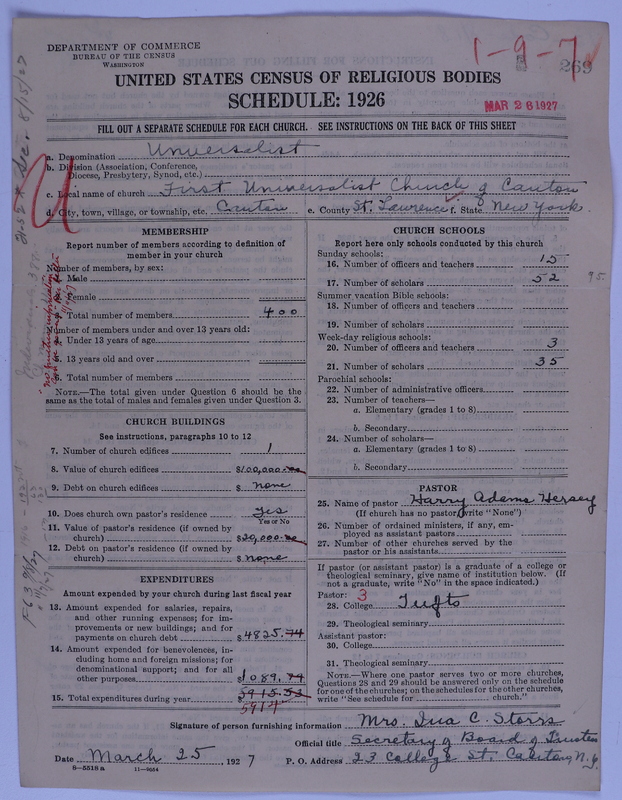 DEPARTMENT OF COMMERCE
BUREAU OF THE CENSUS
WASHINGTON
1-9-7
269
UNITED STATES CENSUS OF RELIGIOUS BODIES
SCHEDULE: 1926
MAR 28 1927
FILL OUT A SEPARATE SCHEDULE FOR EACH CHURCH. SEE INSTRUCTIONS ON THE BACK OF THIS SHEET
a. Denomination Universalist
b. Division (Association, Conference, Diocese, Presbytery, Synod, etc.)
c. Local name of church First Universalist Church of Canton
d. City, town, village, or township, etc. Canton e. County St. Lawrence f. State New York.
MEMBERSHIP
Report number of members according to definition of member in your church
Number of members, by sex:
1. Male
2. Female
3. Total number of members 400
Number of members under and over 13 years old:
4. Under 13 years of age
5. 13 years old and over
6. Total number of members
NOTE.—The total given under Question 6 should be the same as the total of males and females given under Question 3.
CHURCH BUILDINGS
See instructions, paragraphs 10 to 12
7. Number of church edifices 1
8. Value of church edifices $100,000.00
9. Debt on church edifices $ none
10. Does church own pastor's residence yes
Yes or No
11. Value of pastor's residence (if owned by church) $20,000.00
12. Debt on pastor's residence (if owned by church) $ none
EXPENDITURES
Amount expended by your church during last fiscal year
13. Amount expended for salaries, repairs, and other running expenses; for improvements or new buildings; and for payments on church debt $4825.74
14. Amount expended for benevolences, including home and foreign missions; for denominational support; and for all other purposes $1089.74
15. Total expenditures during year 5915.53
5914
CHURCH SCHOOLS
Report here only schools conducted by this church
Sunday schools:
16. Number of officers and teachers 15
17. Number of scholars 52
95.
Summer vacation Bible schools:
18. Number of officers and teachers
19. Number of scholars
Week-day religious schools:
20. Number of officers and teachers 3
21. Number of scholars 35
Parochial schools:
22. Number of administrative officers
23. Number of teachers—
a. Elementary (grades 1 to 8)
b. Secondary
24. Number of scholars—
a. Elementary (grades 1 to 8)
b. Secondary
PASTOR
25. Name of pastor Harry Adams Hersey
(If church has no pastor, write "None")
26. Number of ordained ministers, if any, employed as assistant pastors
27. Number of other churches served by the pastor or his assistants
If pastor (or assistant pastor) is a graduate of a college or theological seminary, give name of institution below. (If not a graduate, write "No" in the space indicated.)
Pastor: 3
28. College Tufts
29. Theological seminary
Assistant pastor:
30. College
31. Theological seminary
NOTE.—Where one pastor serves two or more churches, Questions 28 and 29 should be answered only on the schedule for one of the churches; on the schedules for the other churches, write "See schedule for church."
Signature of person furnishing information Mrs. Ina C. Storrs
Official title Secretary of Board of Trustees
Date March 25 1927 P. O. Address 23 College St. Canton, N.Y.
8—5518 a 11—9054